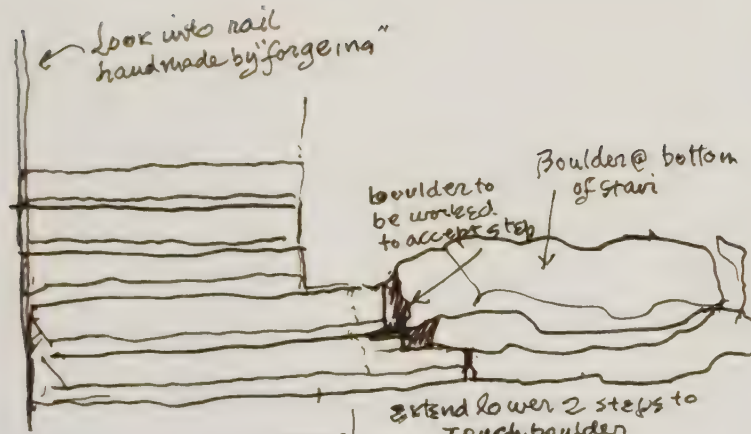 Look into rail
handmade by "forgeing"
Boulder @ bottom
of stair
boulder to
be worked
to accept step
Extend lower 2 steps to
touch boulder